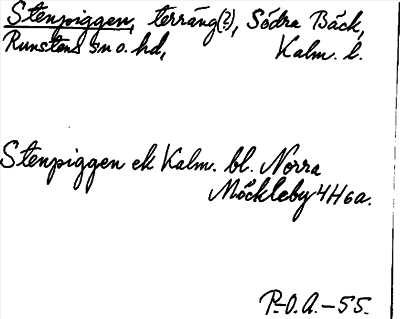 Stenpiggen, terräng(?), Södra Bäck,
Runstens sn o. hd, Kalm. l.
Stenpiggen ek Kalm. bl. Norra
Möckleby 4H6a.
P.-O.A.-55.